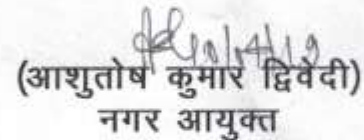 (आशुतोष कुमार द्विवेदी)
नगर आयुक्त